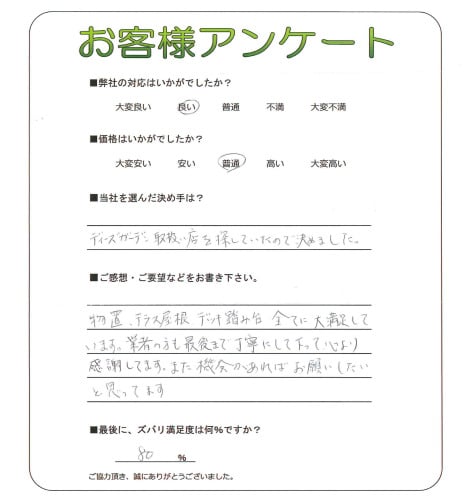 お客様アンケート
■弊社の対応はいかがでしたか？
大変良い 良い 普通 不満 大変不満
■価格はいかがでしたか？
大変安い 安い 普通 高い 大変高い
■当社を選んだ決め手は？
ディーズガーデン取扱い店を探していたので決めました。
■ご感想・ご要望などをお書き下さい。
物置、テラス屋根 デッキ踏み台 全てに大満足して
います。業者の方も最後まで丁寧にして下さって心より
感謝してます。また機会があればお願いしたい
と思ってます
■最後に、ズバリ満足度は何％ですか？
80 %
ご協力頂き、誠にありがとうございました。